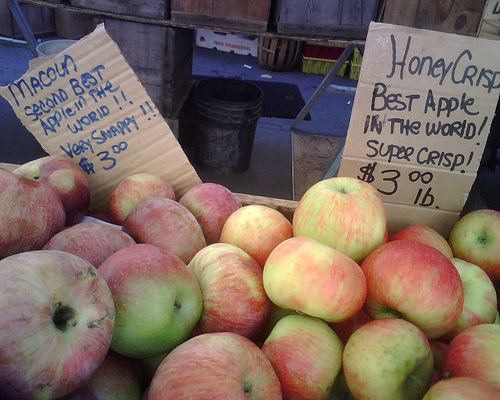 MACOUN
SECOND BEST
APPLE IN THE
WORLD!!
VERY SNAPPY!!
$3.00
HONEYCRISP
BEST APPLE
IN THE WORLD!
SUPER CRISP!
$3.00
lb.